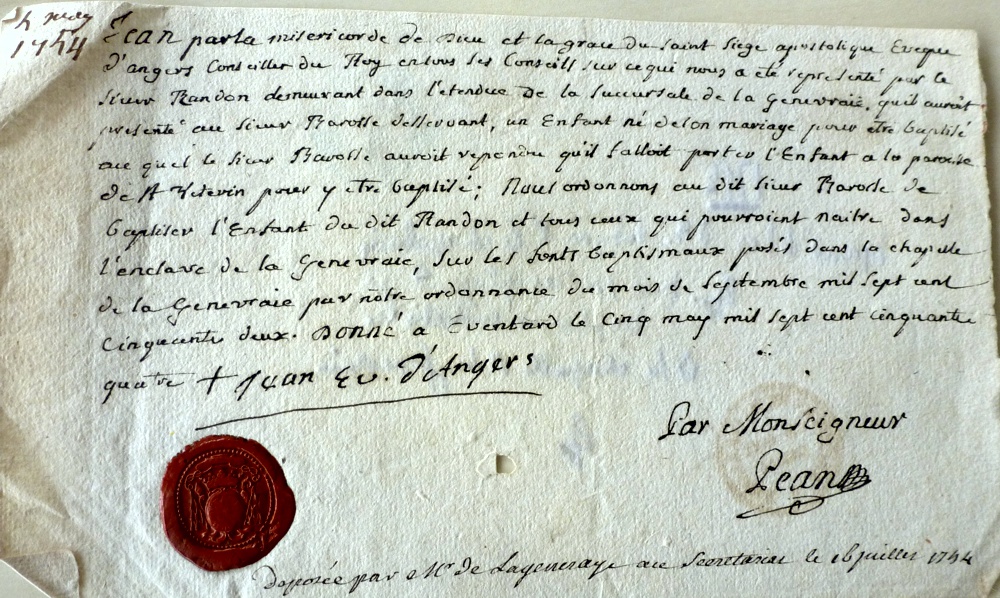 5 may
1754
Jean par la misericorde de Dieu et la grace du saint siege apostolique Eveque
d'angers Conseiller du Roy en tous ses Conseils sur ce qui nous a eté representé par le
sieur Randon demeurant dans l'etendue de la succursale de la Genevraie, qu'il auroit
presenté au sieur Ravosse desservant, un Enfant né de son mariage pour etre baptisé
au quel le sieur Ravosse auroit repondu qu'il falloit porter l'Enfant a la paroisse
de pour y etre baptisé; Nous ordonnons au dit sieur Ravosse de
baptiser l'Enfant du dit Randon et tous ceux qui pourroient naitre dans
l'enclave de la Genevraie, sur les fonts baptismaux posés dans la chapelle
de la Genevraie par nôtre ordonnance du mois de septembre mil sept cent
cinquante deux. Donné a Eventard le cinq may mil sept cent cinquante
quatre + Jean Ev. d'Angers
Par Monseigneur
Pean
Deposée par Mr de Lagenevraye au Secretariat le 16 juillet 1754